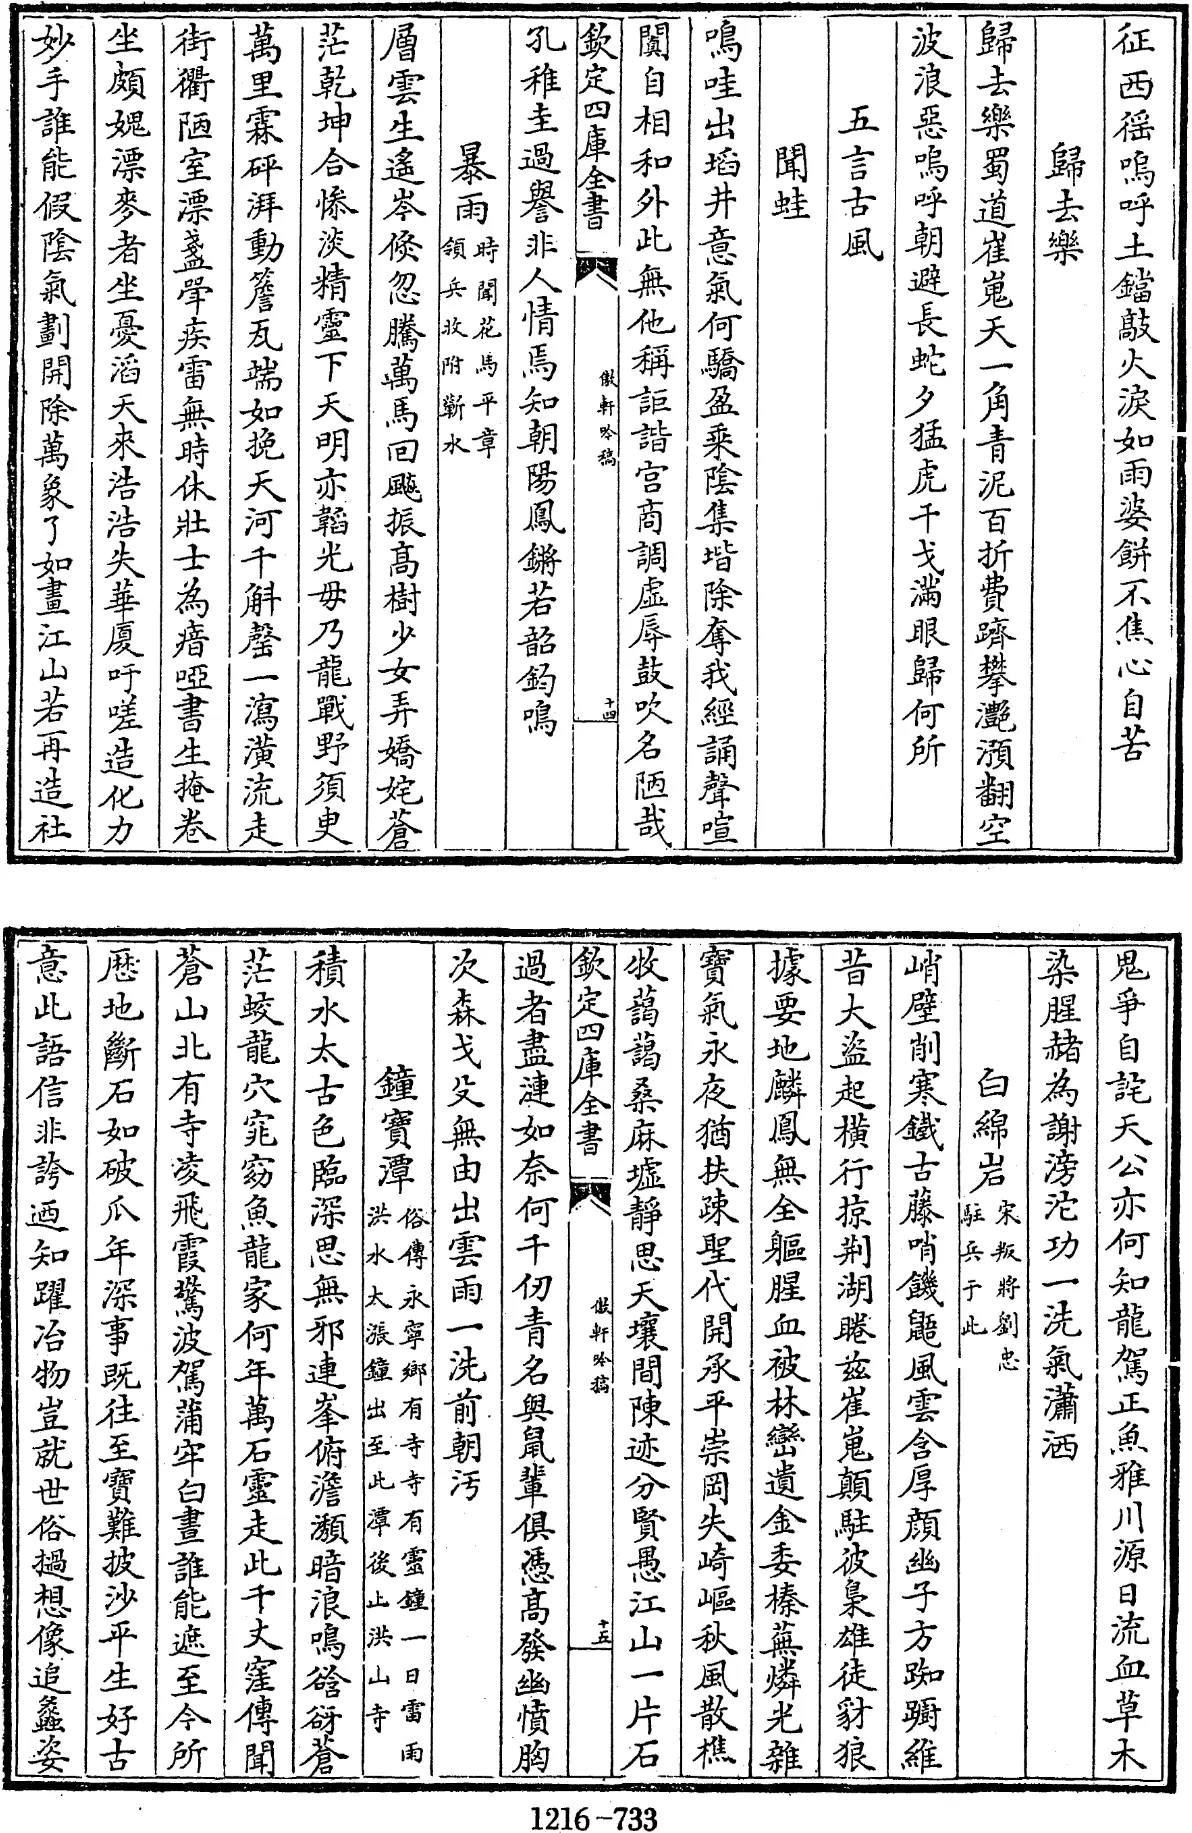 征西徭嗚呼土鐺敲火淚如雨婆餅不焦心自苦
歸去樂
歸去樂蜀道崔嵬天一角青泥百折費躋攀灔澦翻空
波浪惡嗚呼朝避長蛇夕猛虎干戈滿眼歸何所
五言古風
聞蛙
鳴哇出埳井意氣何驕盈乘陰集堦除奪我經誦聲喧
闐自相和外此無他稱詎諧宫商調虚辱鼓吹名陋哉
欽定四庫全書
傲軒吟稿
十四
孔稚圭過譽非人情焉知朝陽鳳鏘若韶鈞鳴
暴雨
時聞花馬平章
領兵收附蘄水
層雲生遙岑倐忽騰萬馬回飈振髙樹少女弄嬌姹蒼
茫乾坤合慘淡精靈下天明亦韜光毋乃龍戰野須臾
萬里霖砰湃動簷瓦端如挽天河千斛罄一瀉潢流走
街衢陋室漂盞斝疾雷無時休壯士為瘖啞書生掩卷
坐頗媿漂麥者坐憂滔天來浩浩失華厦吁嗟造化力
妙手誰能假陰氣劃開除萬象了如畫江山若再造社
鬼爭自詫天公亦何知龍駕正魚雅川源日流血草木
染腥赭為謝滂沱功一洗氣瀟洒
白綿岩
宋叛將劉忠
駐兵于此
峭壁削寒鐵古藤哨饑鼯風雲含厚顔幽子方踟躕維
昔大盜起橫行掠荆湖睠兹崔嵬顛駐彼梟雄徒豺狼
據要地麟鳳無全軀腥血被林巒遺金委榛蕪燐光雜
寳氣永夜猶扶疎聖代開承平崇岡失崎嶇秋風散樵
牧藹藹桑麻墟靜思天壤間陳迹分賢愚江山一片石
欽定四庫全書
傲軒吟稿
十五
過者盡漣如奈何千仞青名與鼠輩俱憑髙發幽憤胸
次森戈殳無由出雲雨一洗前朝汚
鐘寳潭
俗傳永寧鄉有寺寺有靈鐘一日雷雨
洪水太漲鐘出至此潭後止洪山寺
積水太古色臨深思無邪連峯俯澹瀕暗浪鳴谽谺蒼
茫蛟龍穴窕窈魚龍家何年萬石靈走此千丈窪傳聞
蒼山北有寺凌飛霞驚波駕蒲牢白晝誰能遮至今所
歴地斷石如破瓜年深事既往至寳難披沙平生好古
意此語信非誇迺知躍冶物豈就世俗撾想像追蠡姿
1216-733